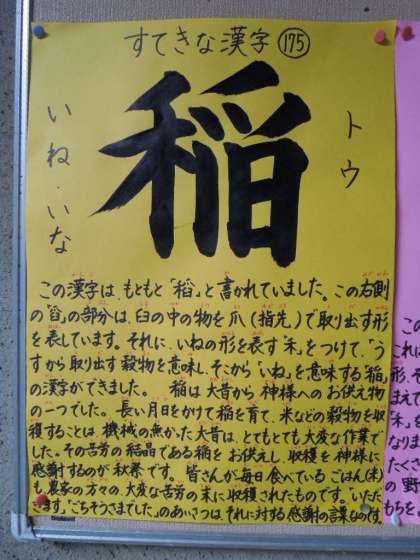 すてきな漢字 175
稲
トウ
いね・いな
この漢字は、もともと「稻」と書かれていました。この右側
の「舀」の部分は、臼の中の物を爪(指先)で取り出す形
を表しています。それに、いねの形を表す「禾」をつけて、「う
すから取り出す穀物を意味し、そこから「いね」を意味する「稲」
の漢字ができました。 稲は大昔から神様へのお供え物
の一つでした。長い月日をかけて稲を育て、米などの穀物を収
穫することは 機械の無かった大昔は、とてもとても大変な作業で
した。その苦労の結晶である稲を お供えし、収穫を神様に
感謝するのが秋祭です。皆さんが毎日食べている ごはん(米)
も農家の方々の、大変な苦労の末に収穫されたものです。「いただ
きます」「ごちそうさまでした」のあいさつは それに対する 感謝の言葉なのです。
この
これに
形、そ
まえて
「木」を
なりま
たくさ
の野
もちを